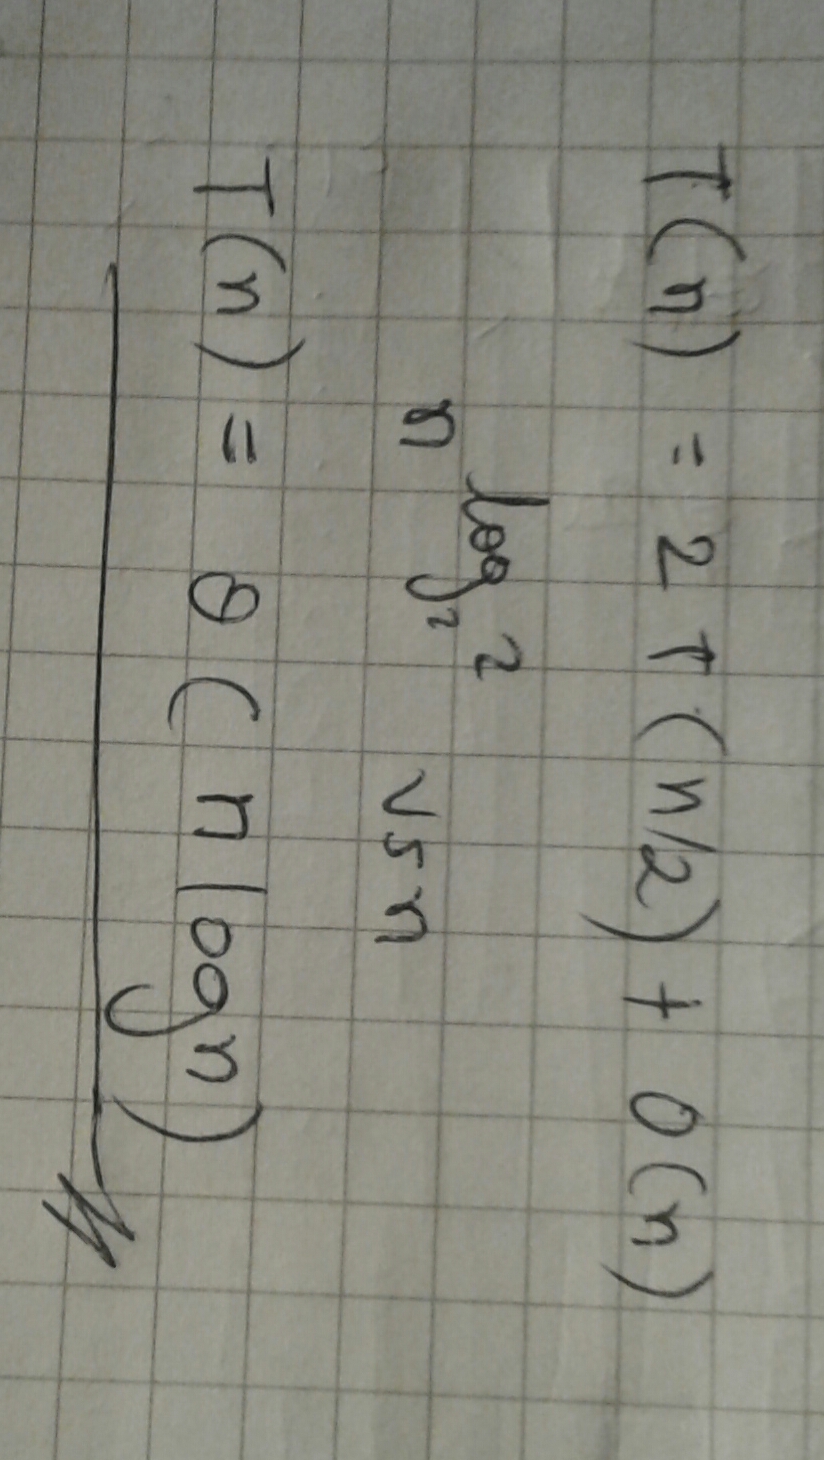 T(n) = 2 T(n/2) + O(n)
n^{log_2 2} vs n
T(n) = θ(n log n)